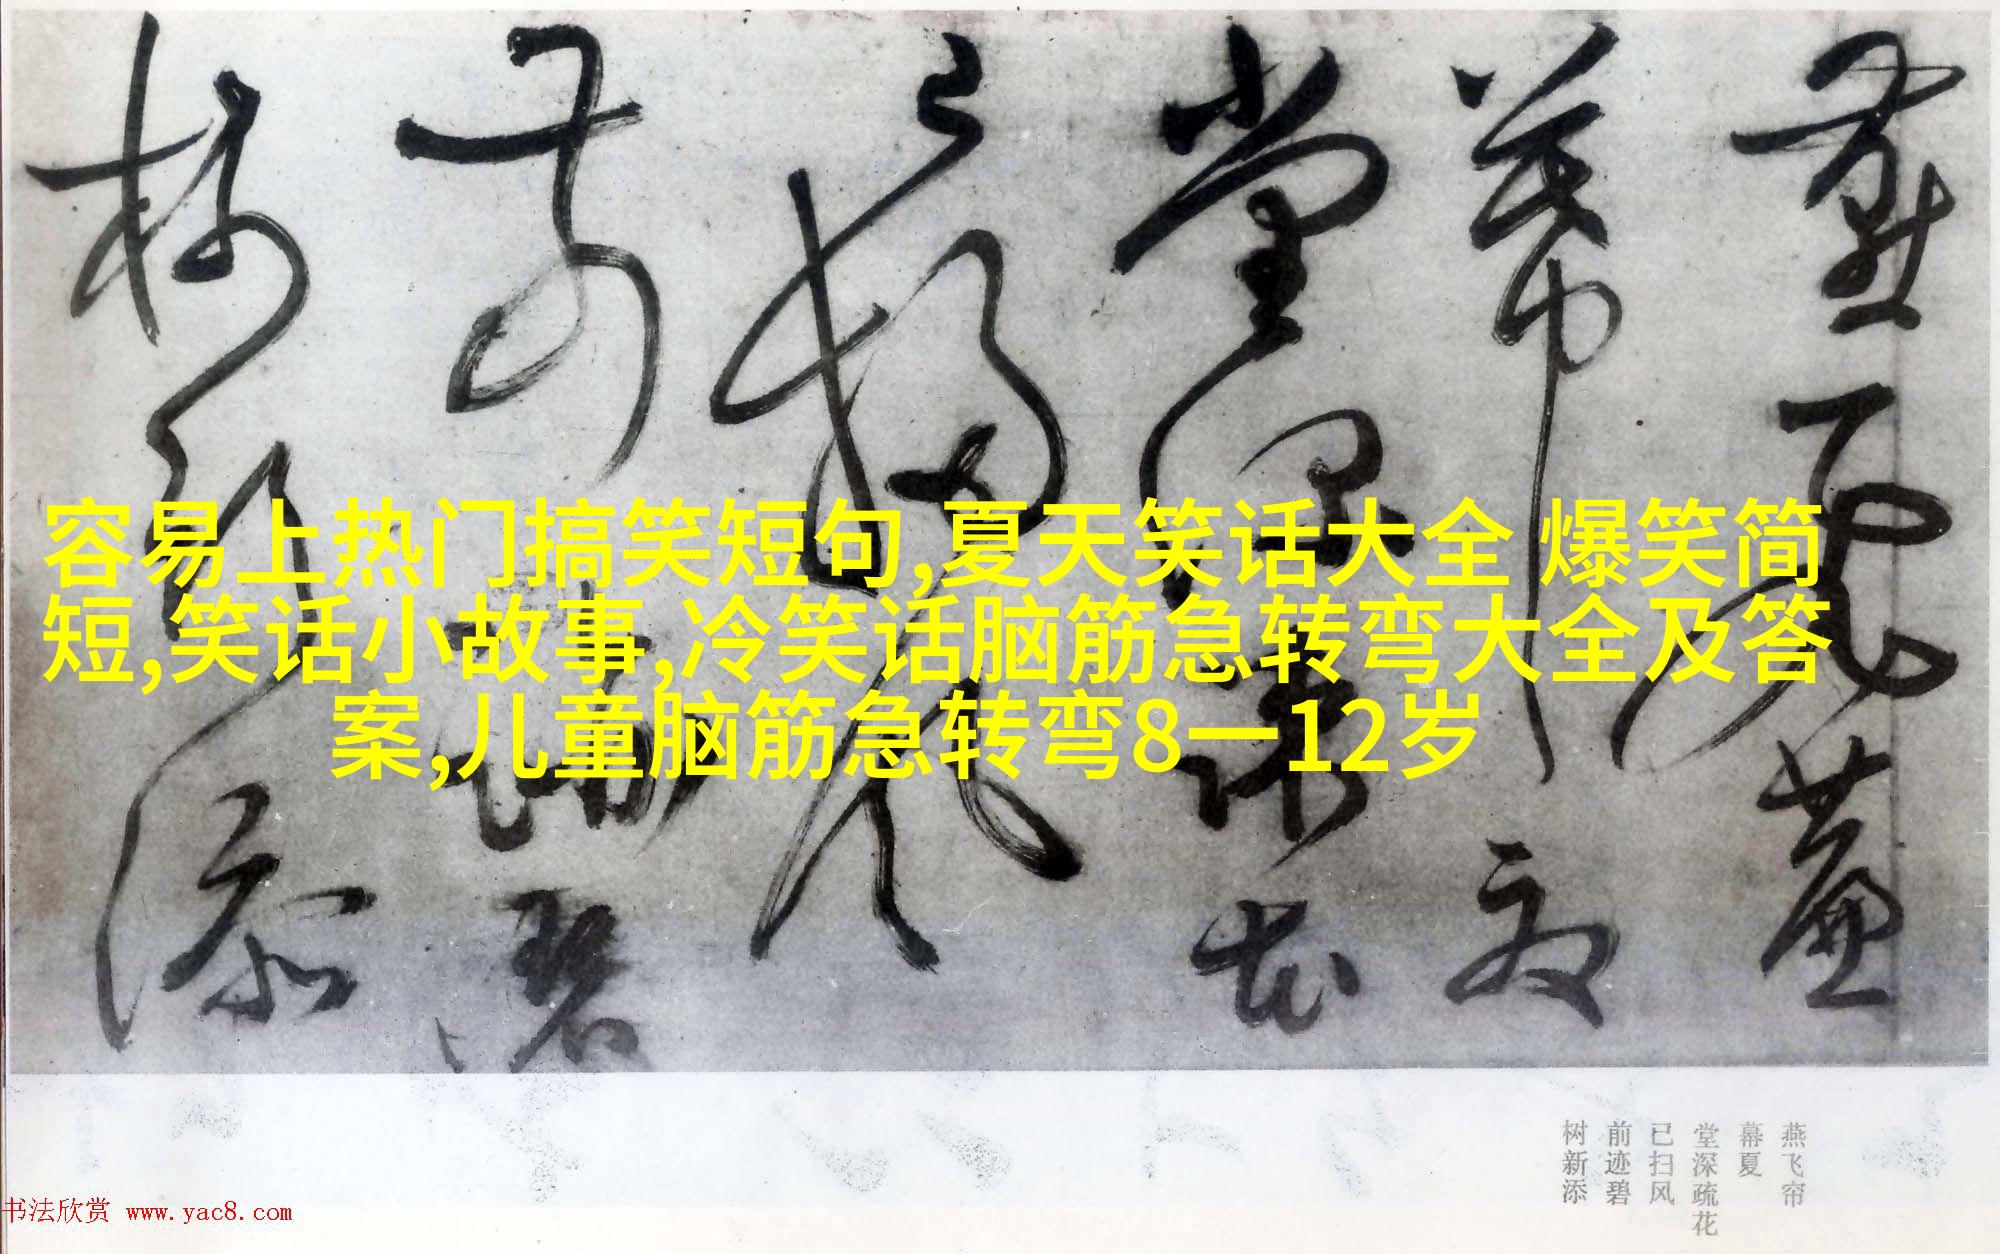 燕飞帘
幕夏
堂深疏花
已扫风
前迹碧
树新添
容易上热门搞笑短句,夏天笑话大全 爆笑简
短,笑话小故事,冷笑话脑筋急转弯大全及答
案,儿童脑筋急转弯8一12岁
燕飞帘
幕夏
堂深疏花
已扫风
前迹碧
树新添
书法欣赏 www.yac8.com